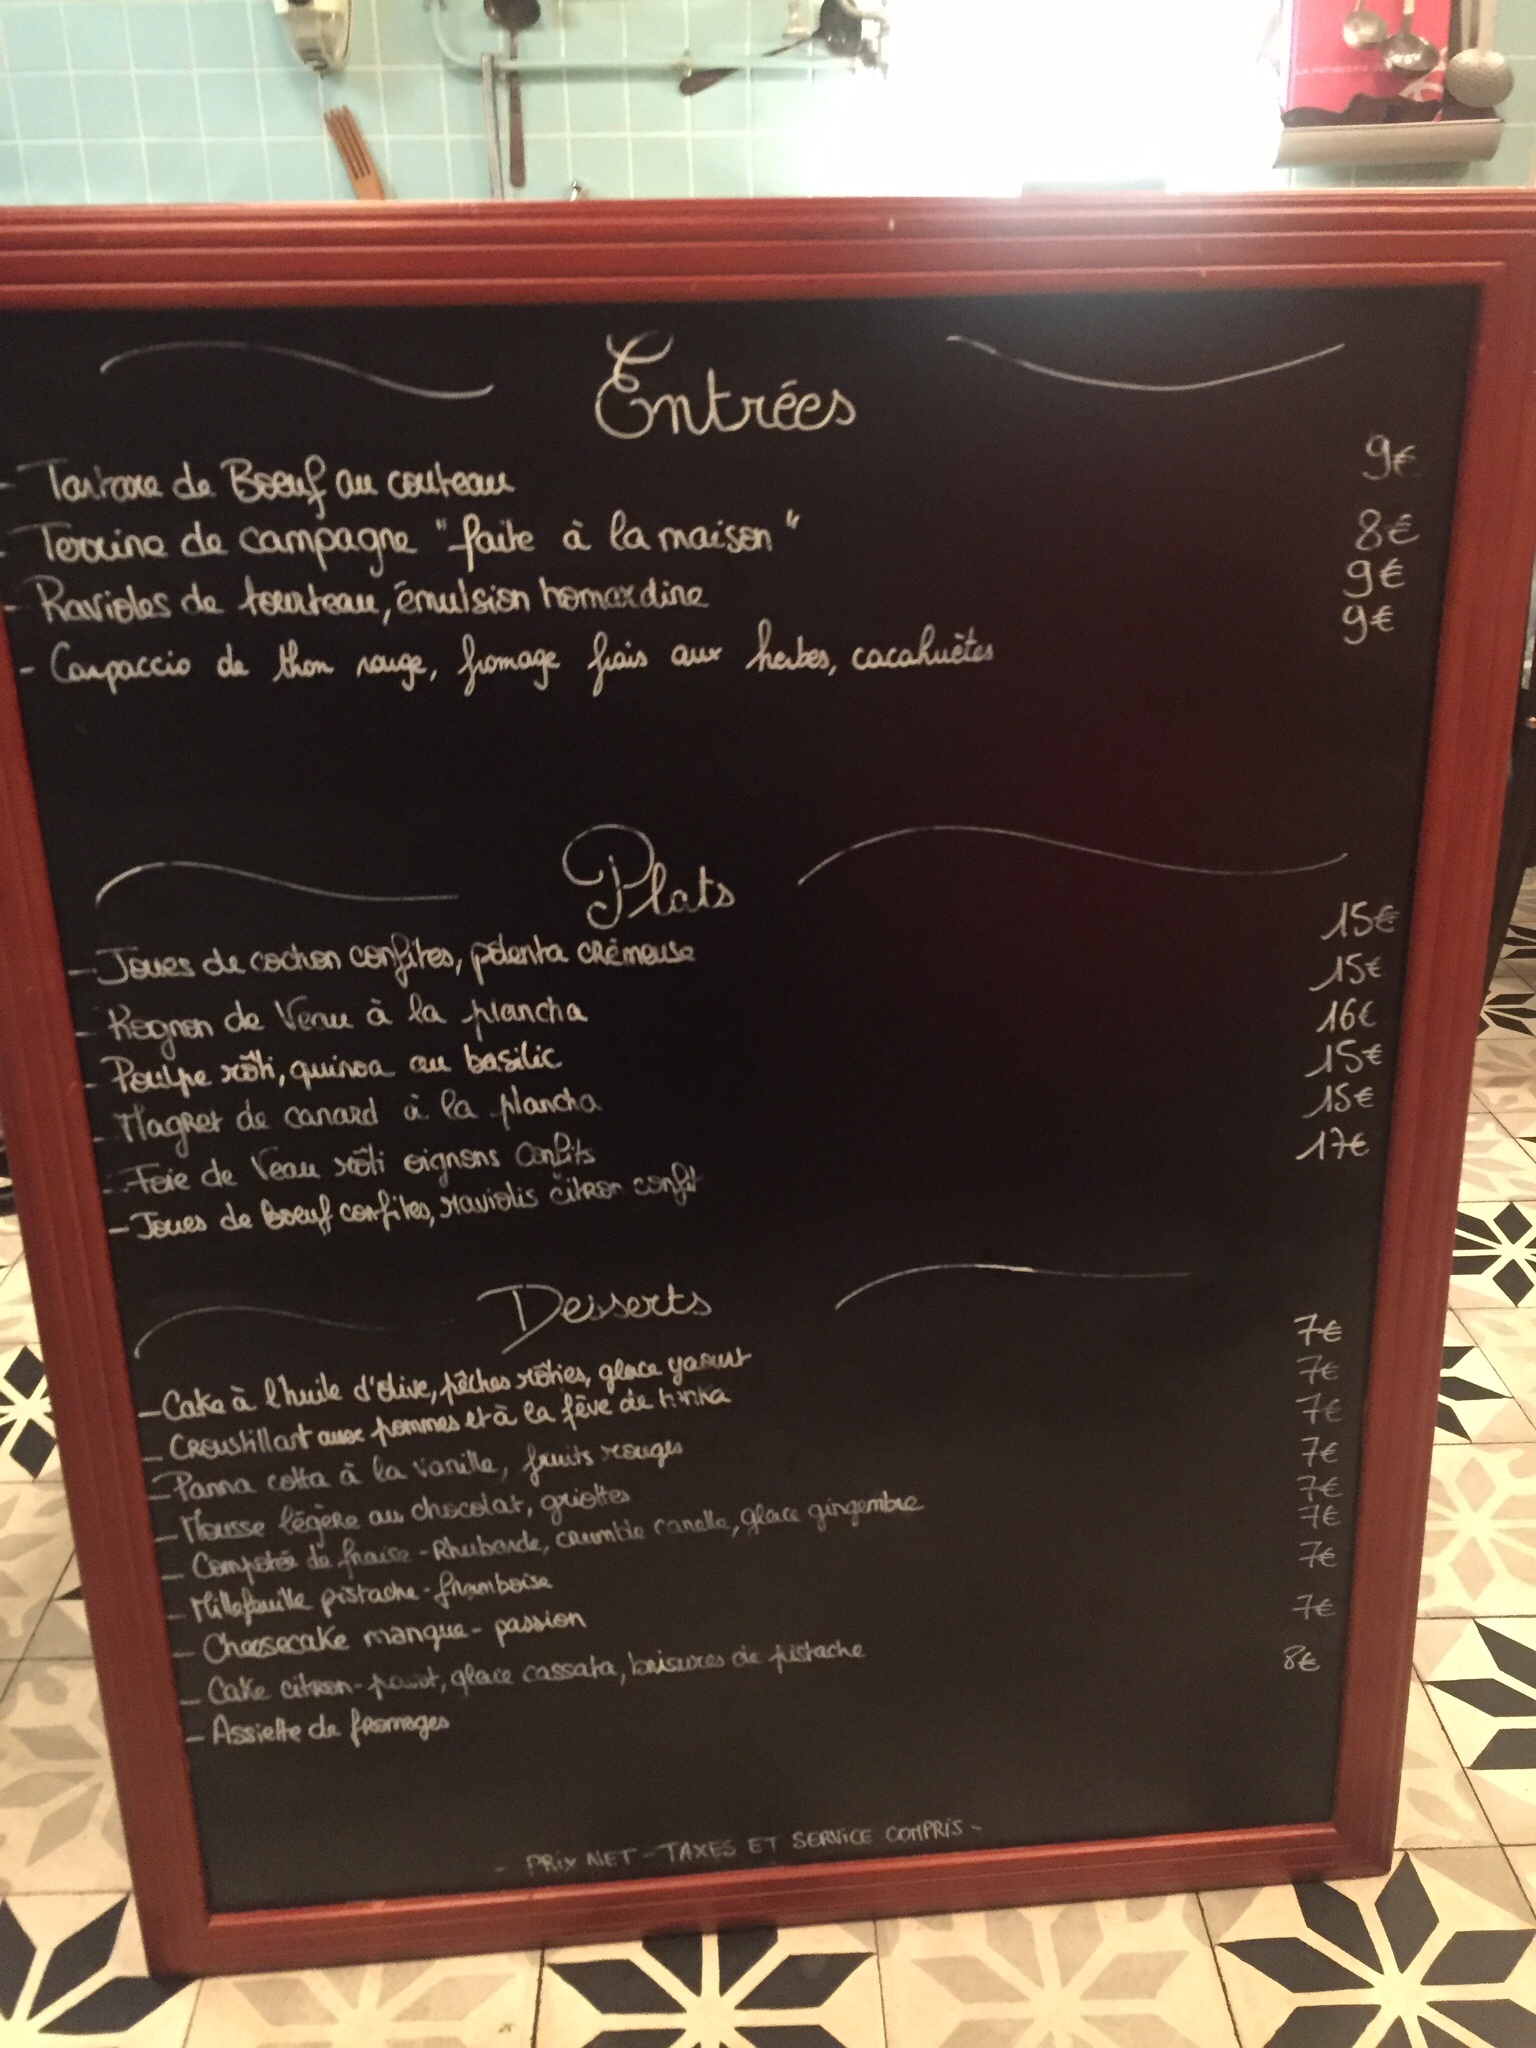 Entrées
- Tartare de Boeuf au couteau 9€
- Terrine de campagne "faite à la maison" 8€
- Ravioles de tourteau, émulsion homardine 9€
- Carpaccio de thon rouge, fromage frais aux herbes, cacahuètes 9€
Plats
- Joues de cochon confites, polenta crémeuse 15€
- Rognon de Veau à la plancha 15€
- Poulpe rôti, quinoa au basilic 16€
- Magret de canard à la plancha 15€
- Foie de Veau rôti oignons confits 15€
- Joues de boeuf confites, raviolis citron confit 17€
Desserts
- Cake à l'huile d'olive, pêches rôties, glace yaourt 7€
- Croustillant aux pommes et à la fève de tonka 7€
- Panna cotta à la vanille, fruits rouges 7€
- Mousse légère au chocolat, griottes 7€
- Compotée de fraise - Rhubarbe, crumble canelle, glace gingembre 7€
- Millefeuille pistache - framboise 7€
- Cheesecake mangue - passion 7€
- Cake citron - pavot, glace cassata, brisures de pistache 7€
- Assiette de fromages 8€
- PRIX NET - TAXES ET SERVICE COMPRIS -